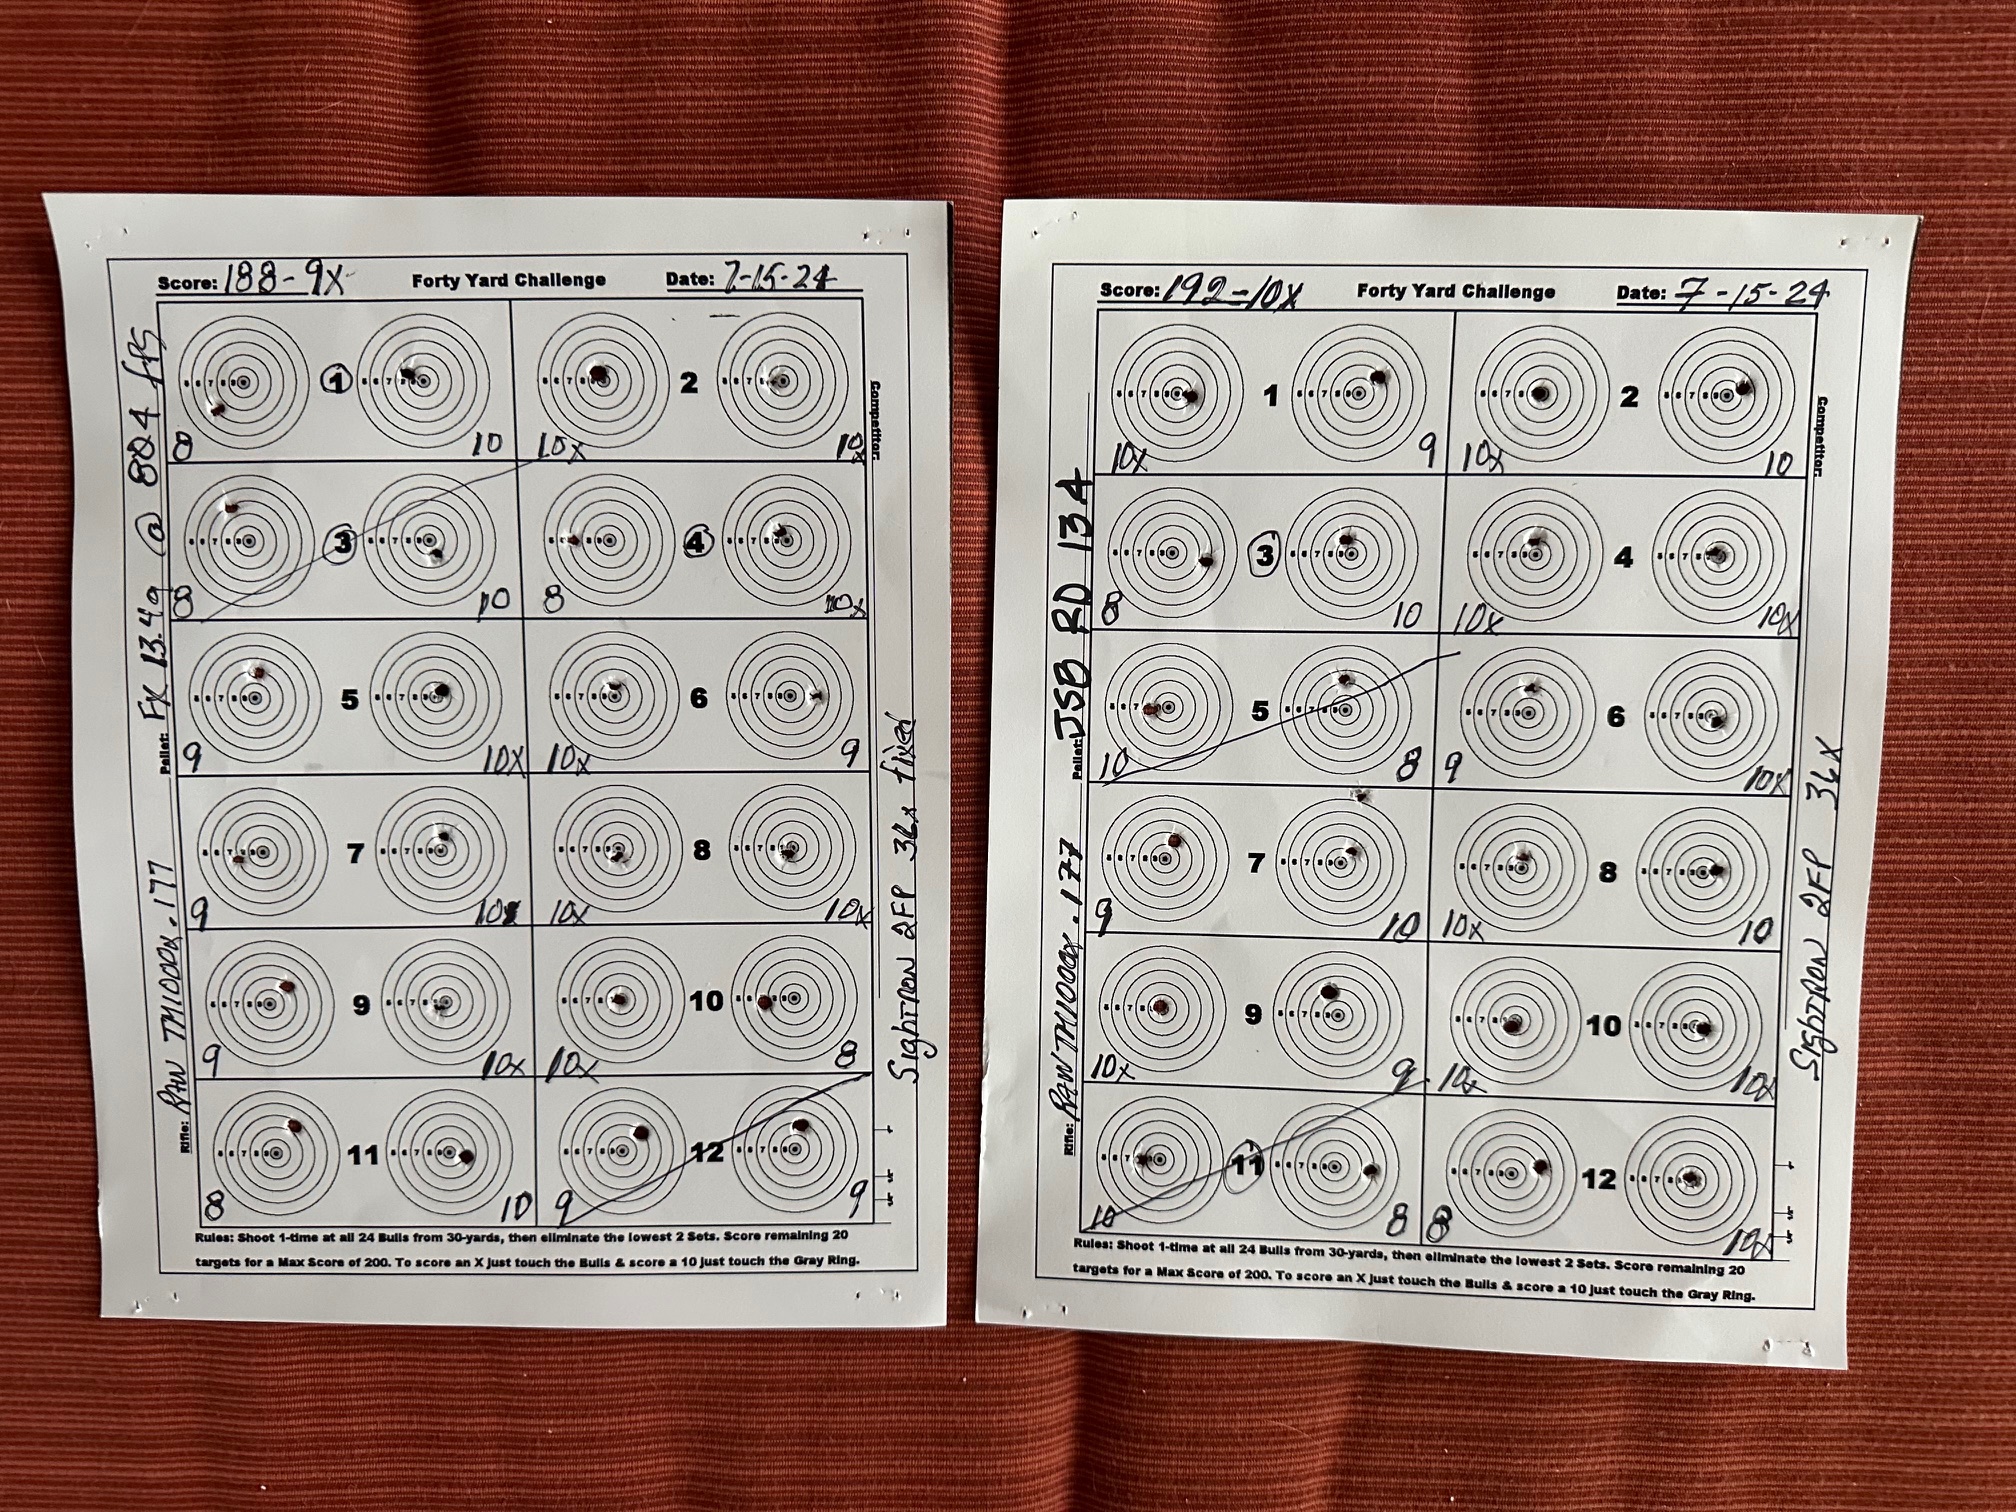 Score: 188-9x Forty Yard Challenge Date: 7-15-24
1 2
8 10 10x 10x
3 4
8 10 8 10x
5 6
9 10x 10x 9
7 8
9 10x 10x 10x
9 10
9 10x 10x 8
11 12
8 10 9 9
Rules: Shoot 1-time at all 24 Bulls from 30-yards, then eliminate the lowest 2 Sets. Score remaining 20
targets for a Max Score of 200. To score an X just touch the Bulls & score a 10 just touch the Gray Ring.
Rifle: RAW TM1000x .177 Pellet: FX 13.4g @ 824 fps
Competitor:
Sightron 2FP 36x fixed
Score: 192-10x Forty Yard Challenge Date: 7-15-24
1 2
10x 9 10x 10
3 4
8 10 10x 10x
5 6
10 8 9 10x
7 8
9 10 10x 10
9 10
10x 9 10x 10x
11 12
10 8 8 10x
Rules: Shoot 1-time at all 24 Bulls from 30-yards, then eliminate the lowest 2 Sets. Score remaining 20
targets for a Max Score of 200. To score an X just touch the Bulls & score a 10 just touch the Gray Ring.
Rifle: RAW TM1000x .177 Pellet: JSB RD 13.4
Competitor:
Sightron 2FP 36x